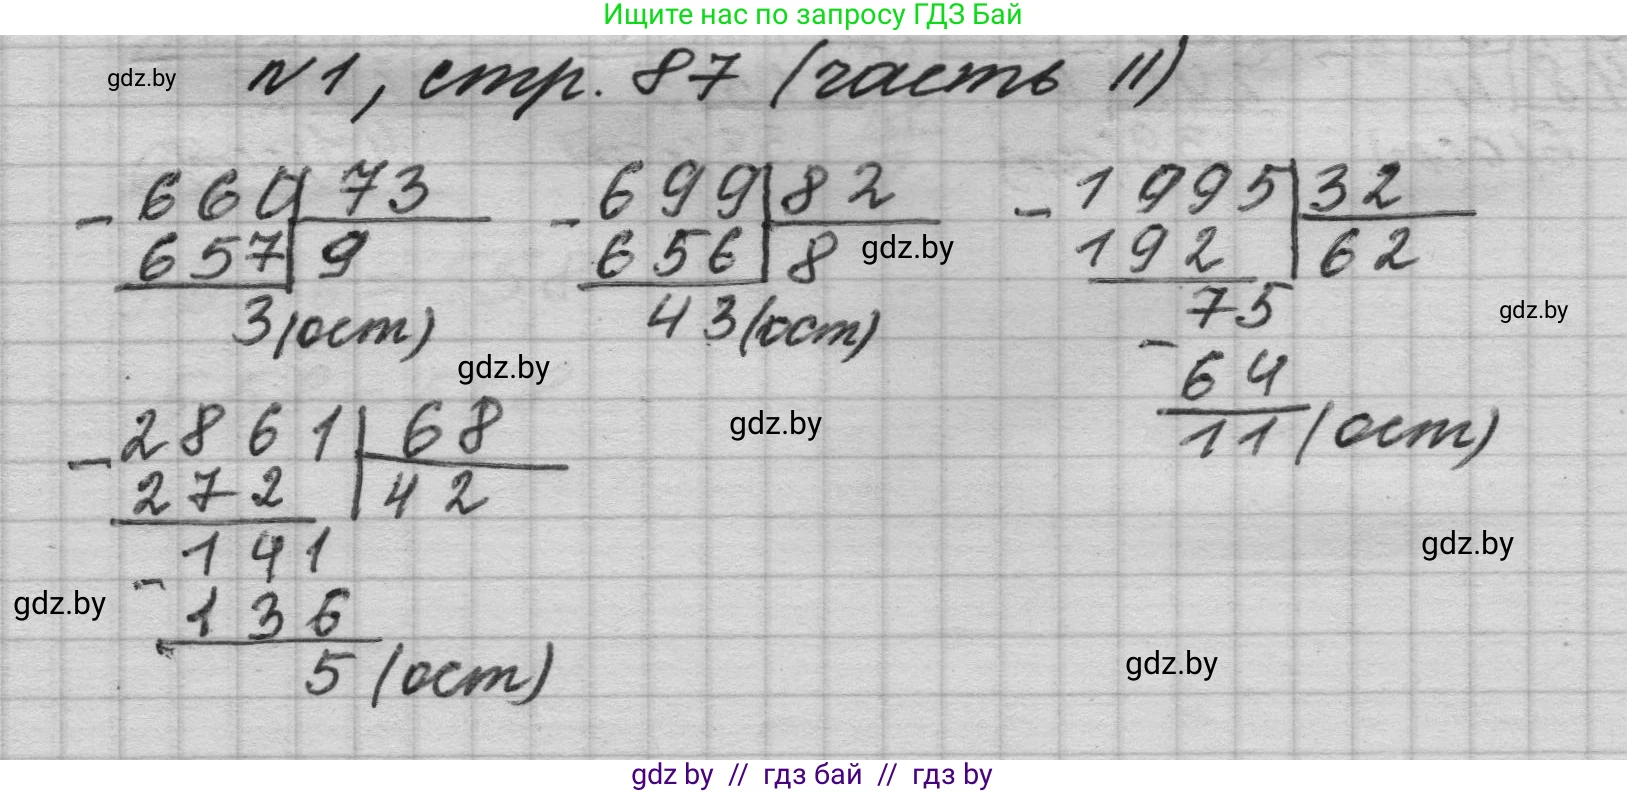 Ищите нас по запросу ГДЗ Бай
gdz.by
№1, стр. 87 (часть II)
660 73
- 657 9
3 (ост)
699 82
- 656 8
43 (ост)
1995 32
- 192 62
75
- 64
11 (ост)
gdz.by
gdz.by
gdz.by
gdz.by
2861 68
- 272 42
141
- 136
5 (ост)
gdz.by
gdz.by
gdz.by
gdz by // гдз бай // гдз by